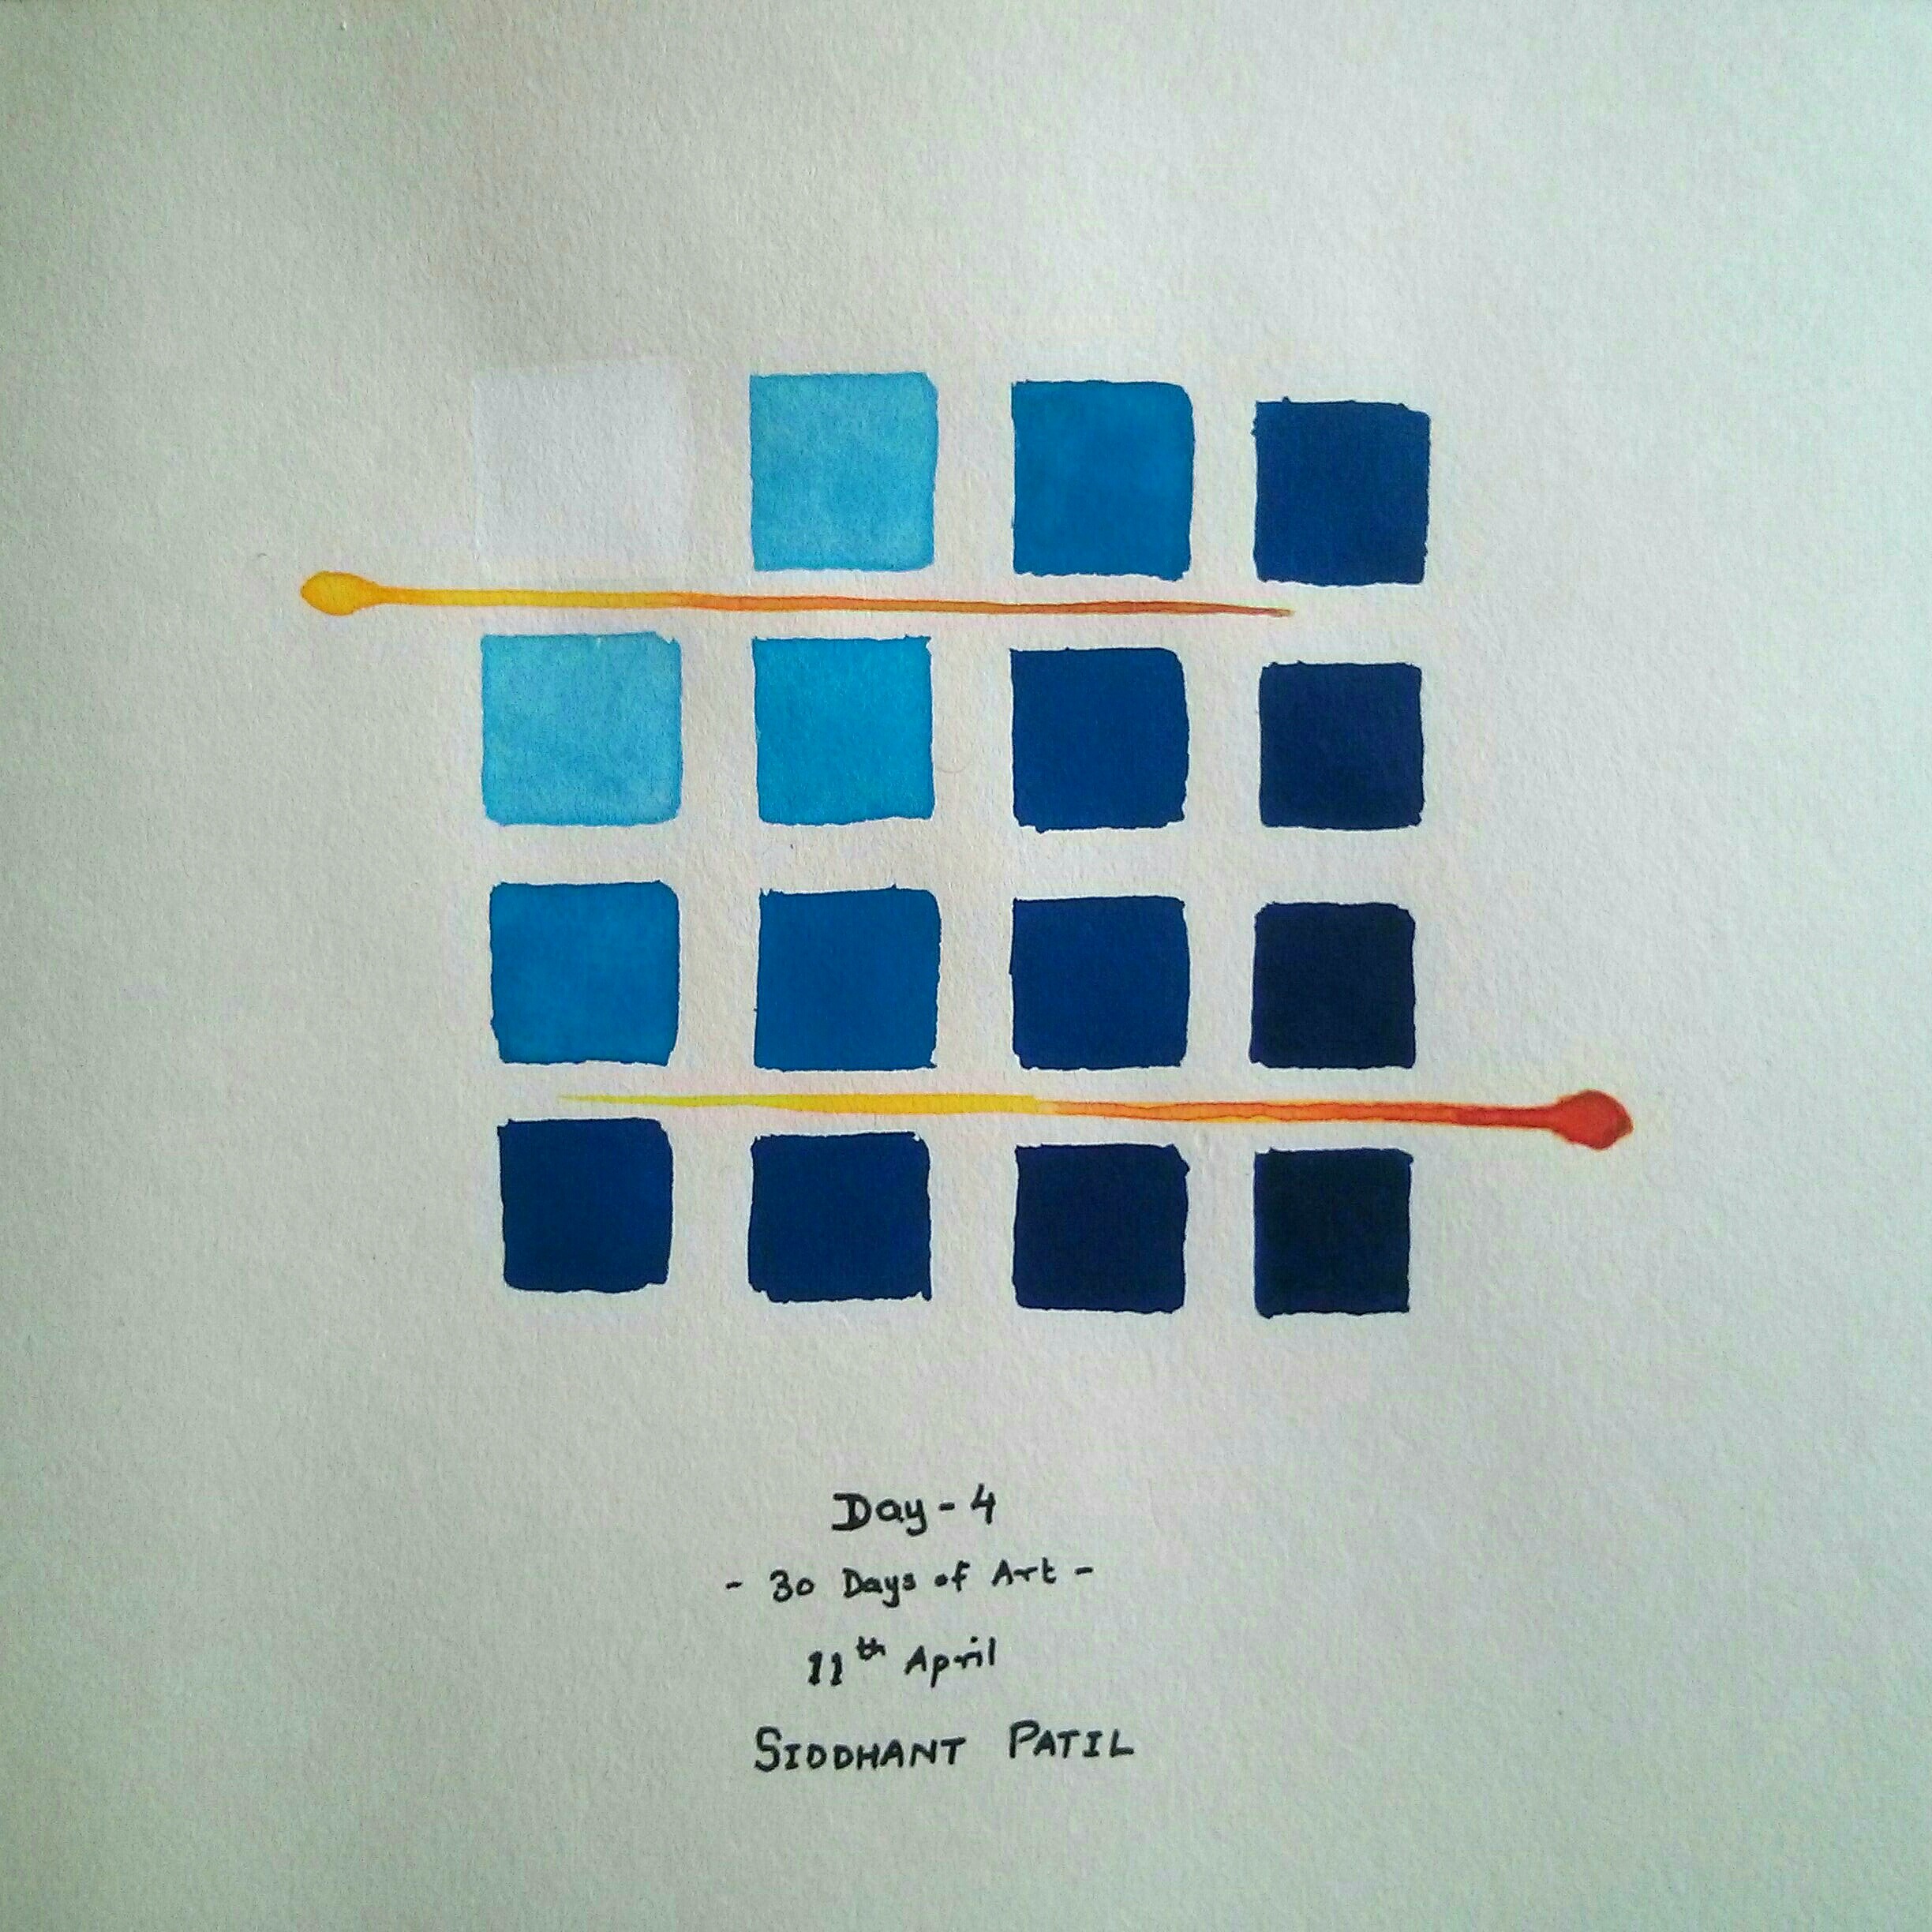 Day - 4
- 30 Days of Art -
11th April
SIDDHANT PATIL